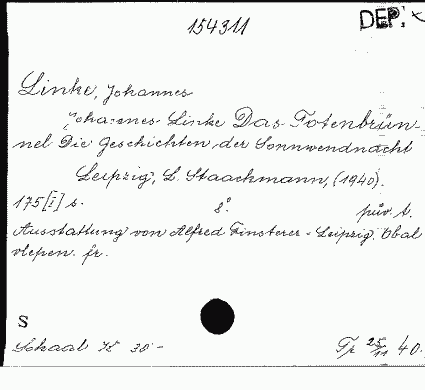 154311
DEP.
Linke, Johannes
Johannes Linke Das Totenbrün-
nel Die Geschichten der Sonnwendnacht
Leipzig, L. Staackmann, (1940).
175[I] s. 8°. pův. t.
Ausstattung von Alfred Finsterer - Leipzig. Obal
vlepen. fr.
S
Schaal K 30 -
Fr 25/11 40.